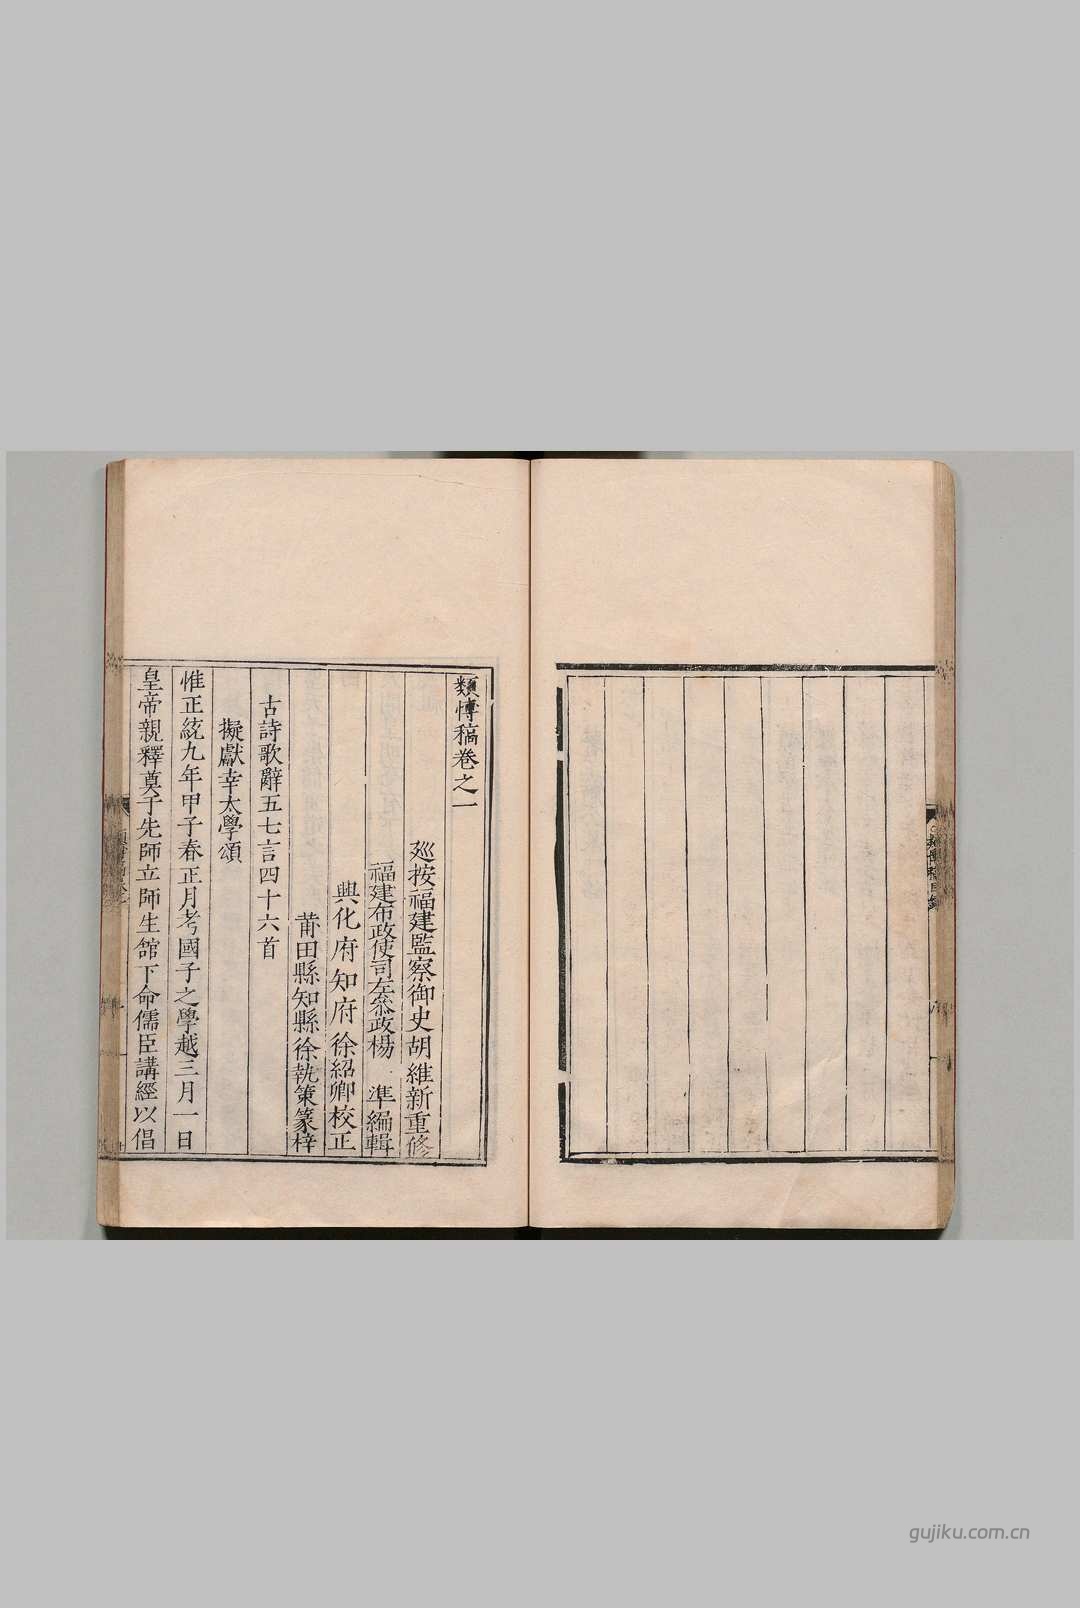 類博稿卷之一
廵按福建監察御史胡維新重修
福建布政使司左叅政楊 準編輯
興化府知府徐紹卿校正
莆田縣知縣徐執策篆梓
古詩歌辭五七言四十六首
擬獻幸太學頌
惟正統九年甲子春正月考國子之學越三月一日
皇帝親釋奠于先師立師生館下命儒臣講經以倡
gujiku.com.cn